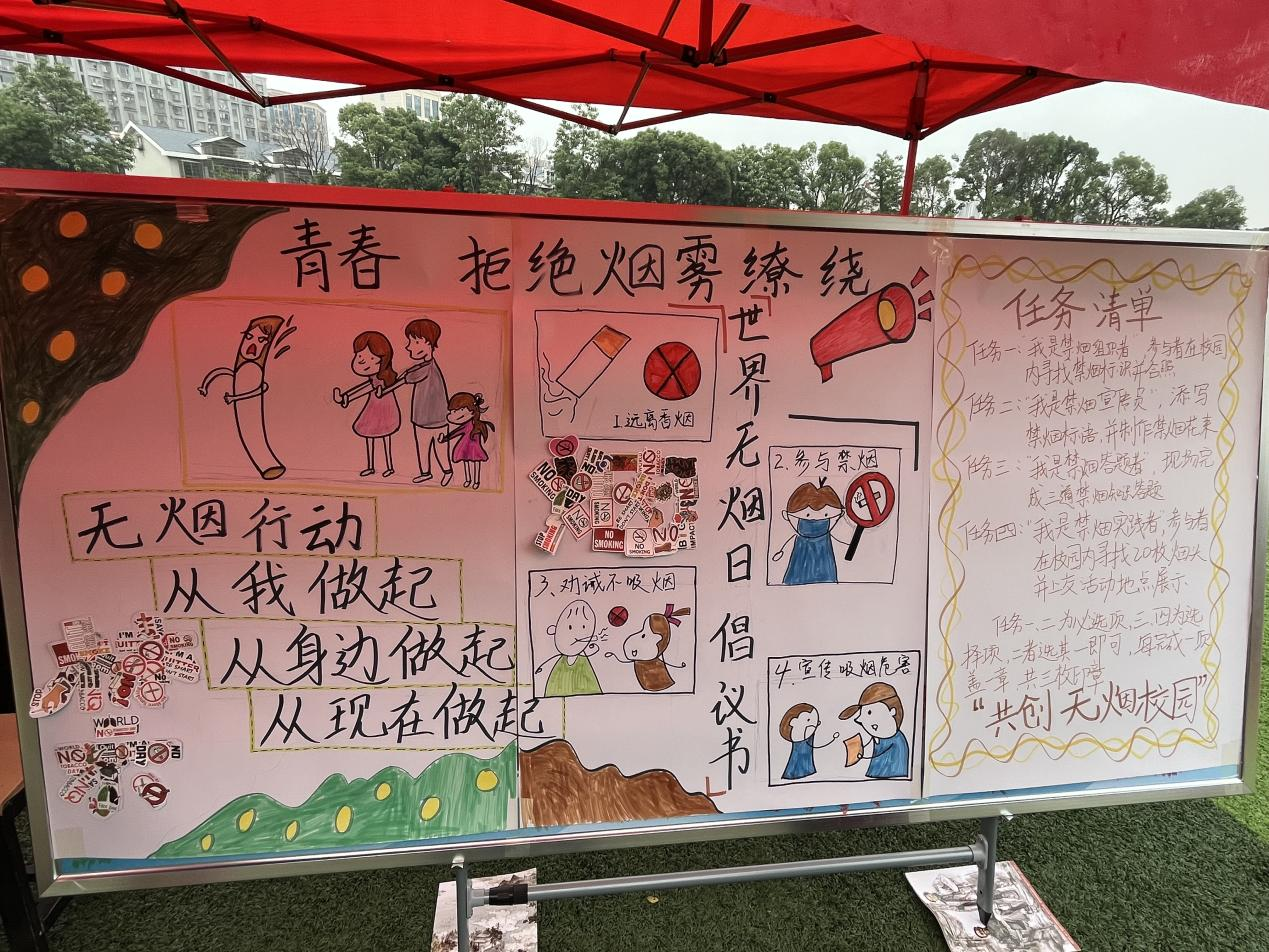 青春 拒绝烟雾缭绕
无烟行动
从我做起
从身边做起
从现在做起
1.远离香烟
世界无烟日倡议书
2.参与禁烟
3、劝诫不吸烟
4.宣传吸烟危害
NO SMOKING
NO SMOKING
NO SMOKING
WORLD
任务清单
任务一:“我是禁烟组织者” 参与者在校园
内寻找禁烟标识并合照
任务二:“我是禁烟宣传员”,添写
禁烟标语,并制作禁烟花束
任务三:“我是禁烟答题者”,现场完
成三道禁烟知识答题
任务四:“我是禁烟实践者,参与者
在校园内寻找20枚烟头
并上交活动地点展示
任务一、二为必选项,三、四为选
择项,二者选其一即可,每完成一项
盖一章,共三枚印章
“共创无烟校园”